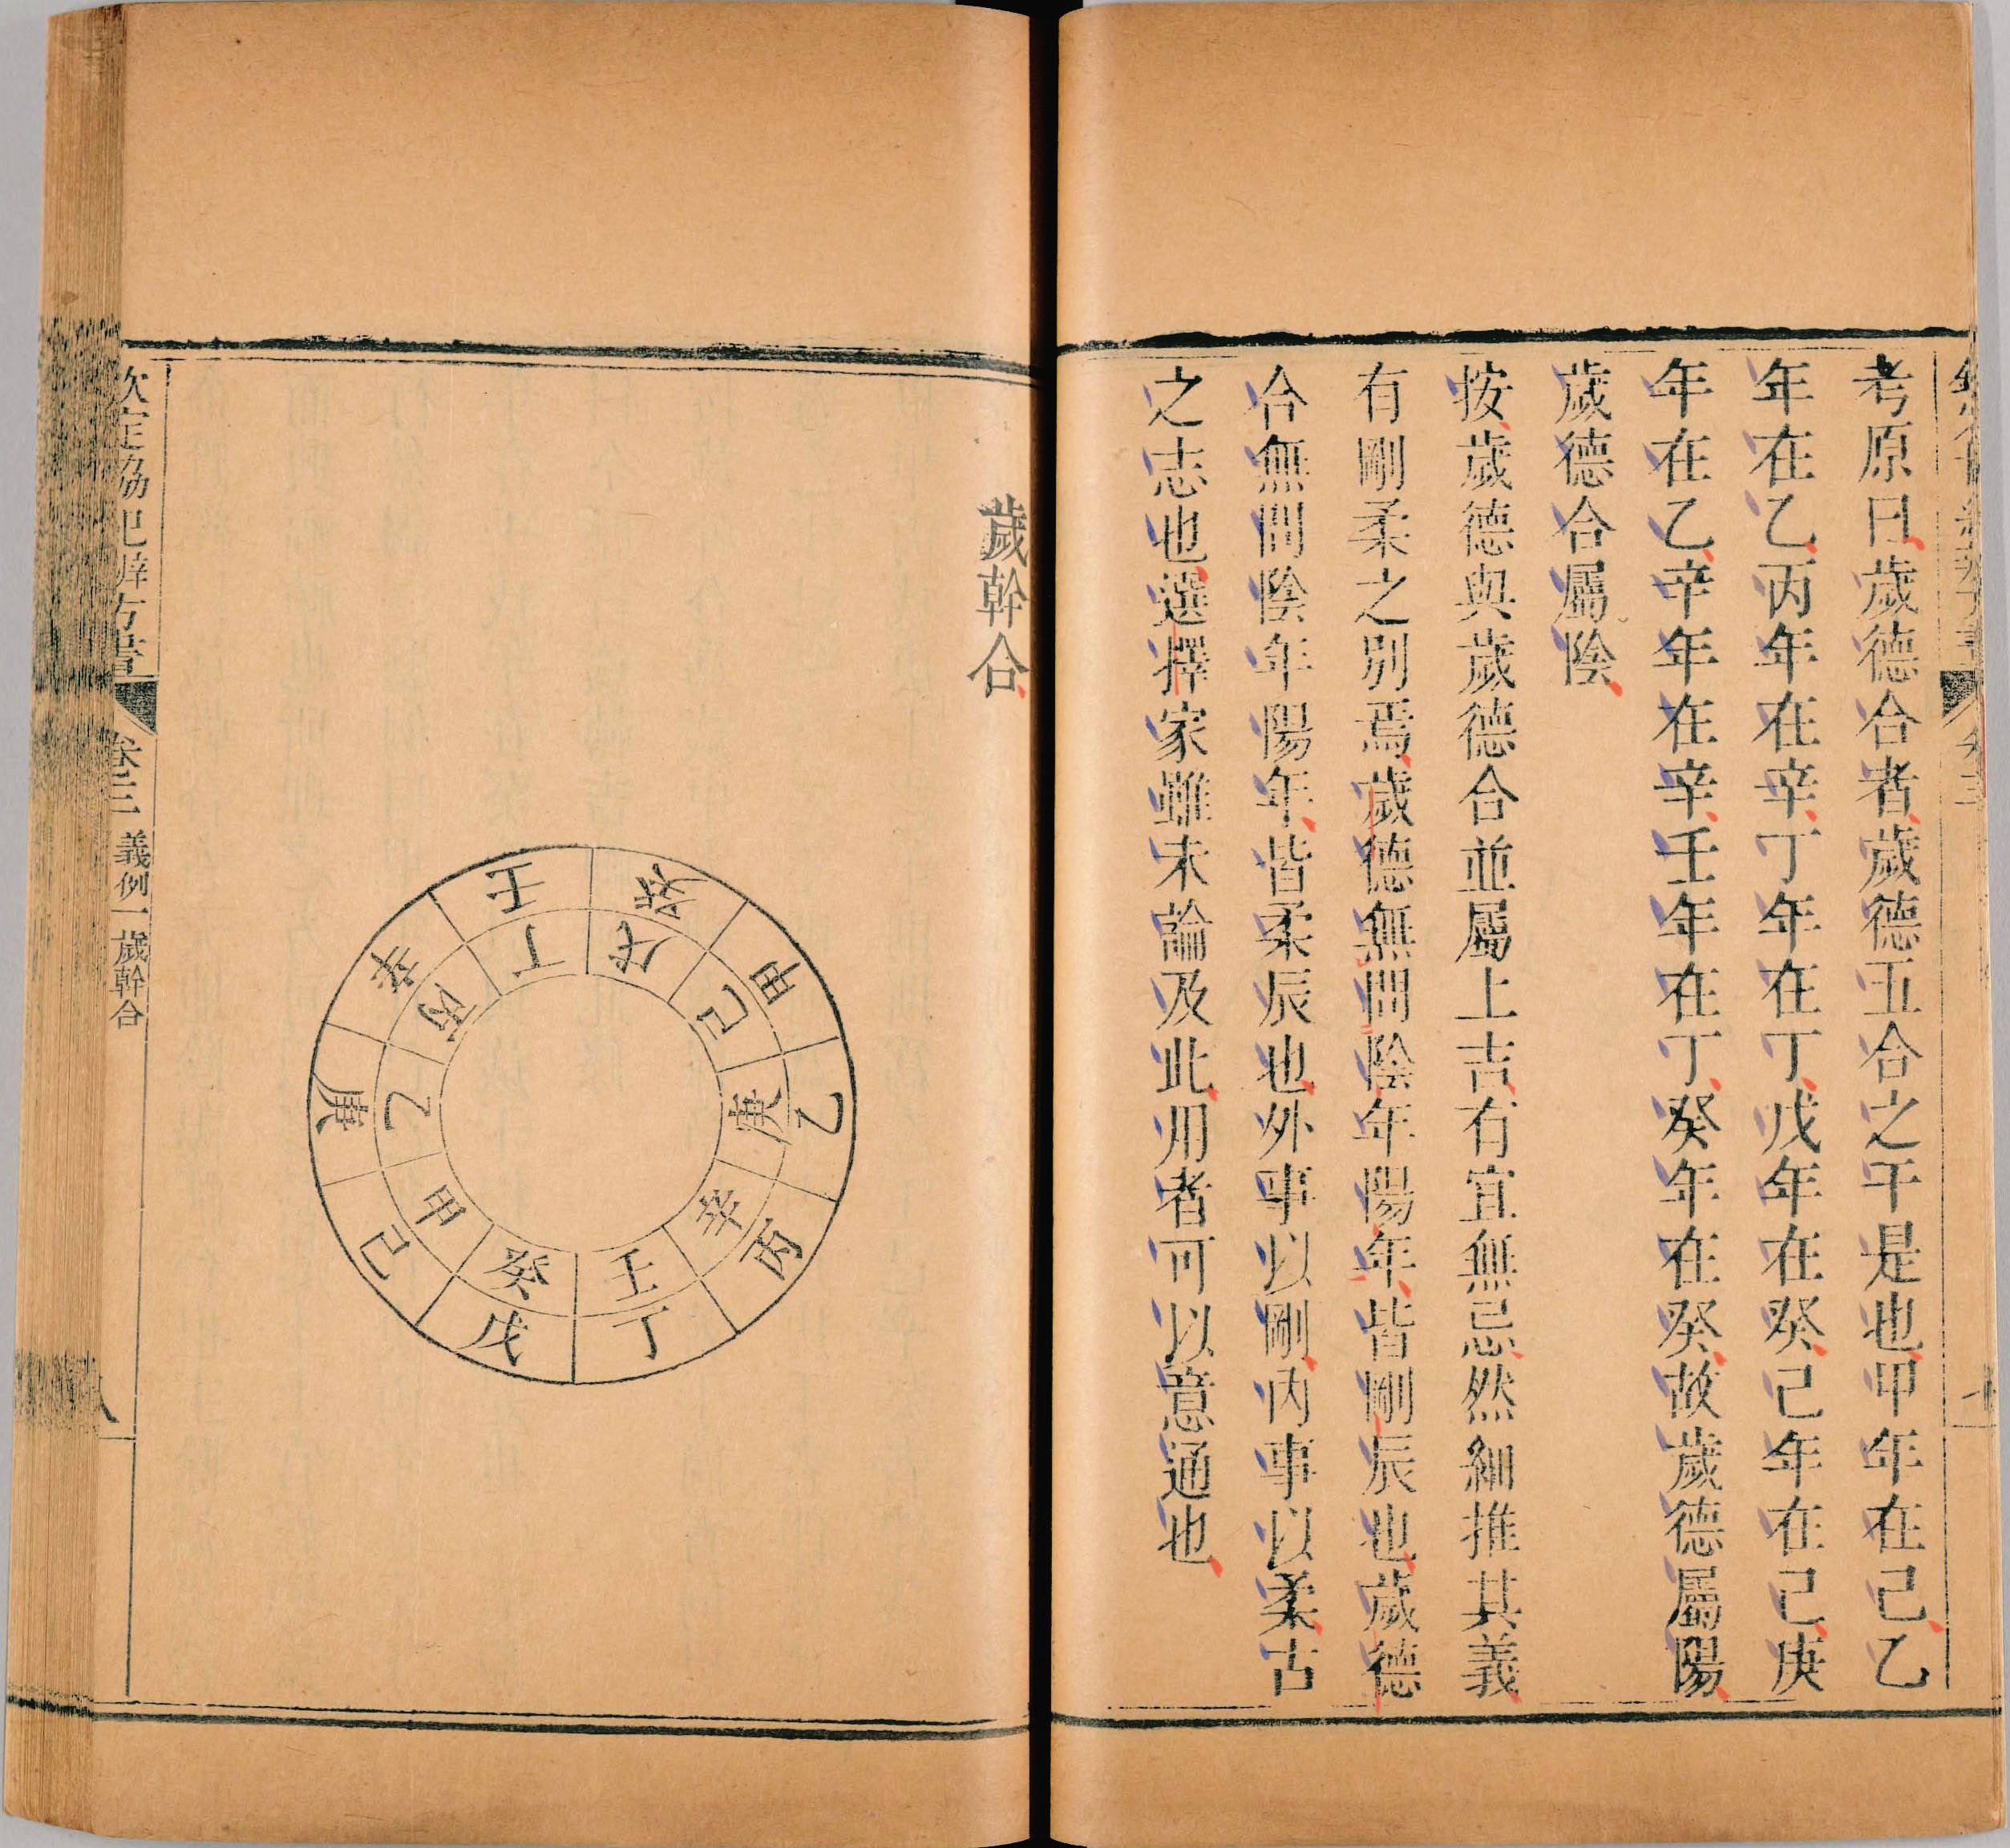 考原曰歲德合者歲德五合之干是也甲年在己乙
年在乙丙年在辛丁年在丁戊年在癸己年在己庚
年在乙辛年在辛壬年在丁癸年在癸故歲德屬陽
歲德合屬陰
按歲德與歲德合並屬上吉有宜無忌然細推其義
有剛柔之別焉歲德無問陰年陽年皆剛辰也歲德
合無問陰年陽年皆柔辰也外事以剛內事以柔古
之志也選擇家雖未論及此用者可以意通也
歲幹合
癸 甲 乙 丙 丁 戊 己 庚 辛 壬
戊 己 庚 辛 壬 癸 甲 乙 丙 丁
欽定協紀辨方書 卷三 義例一 歲幹合 八